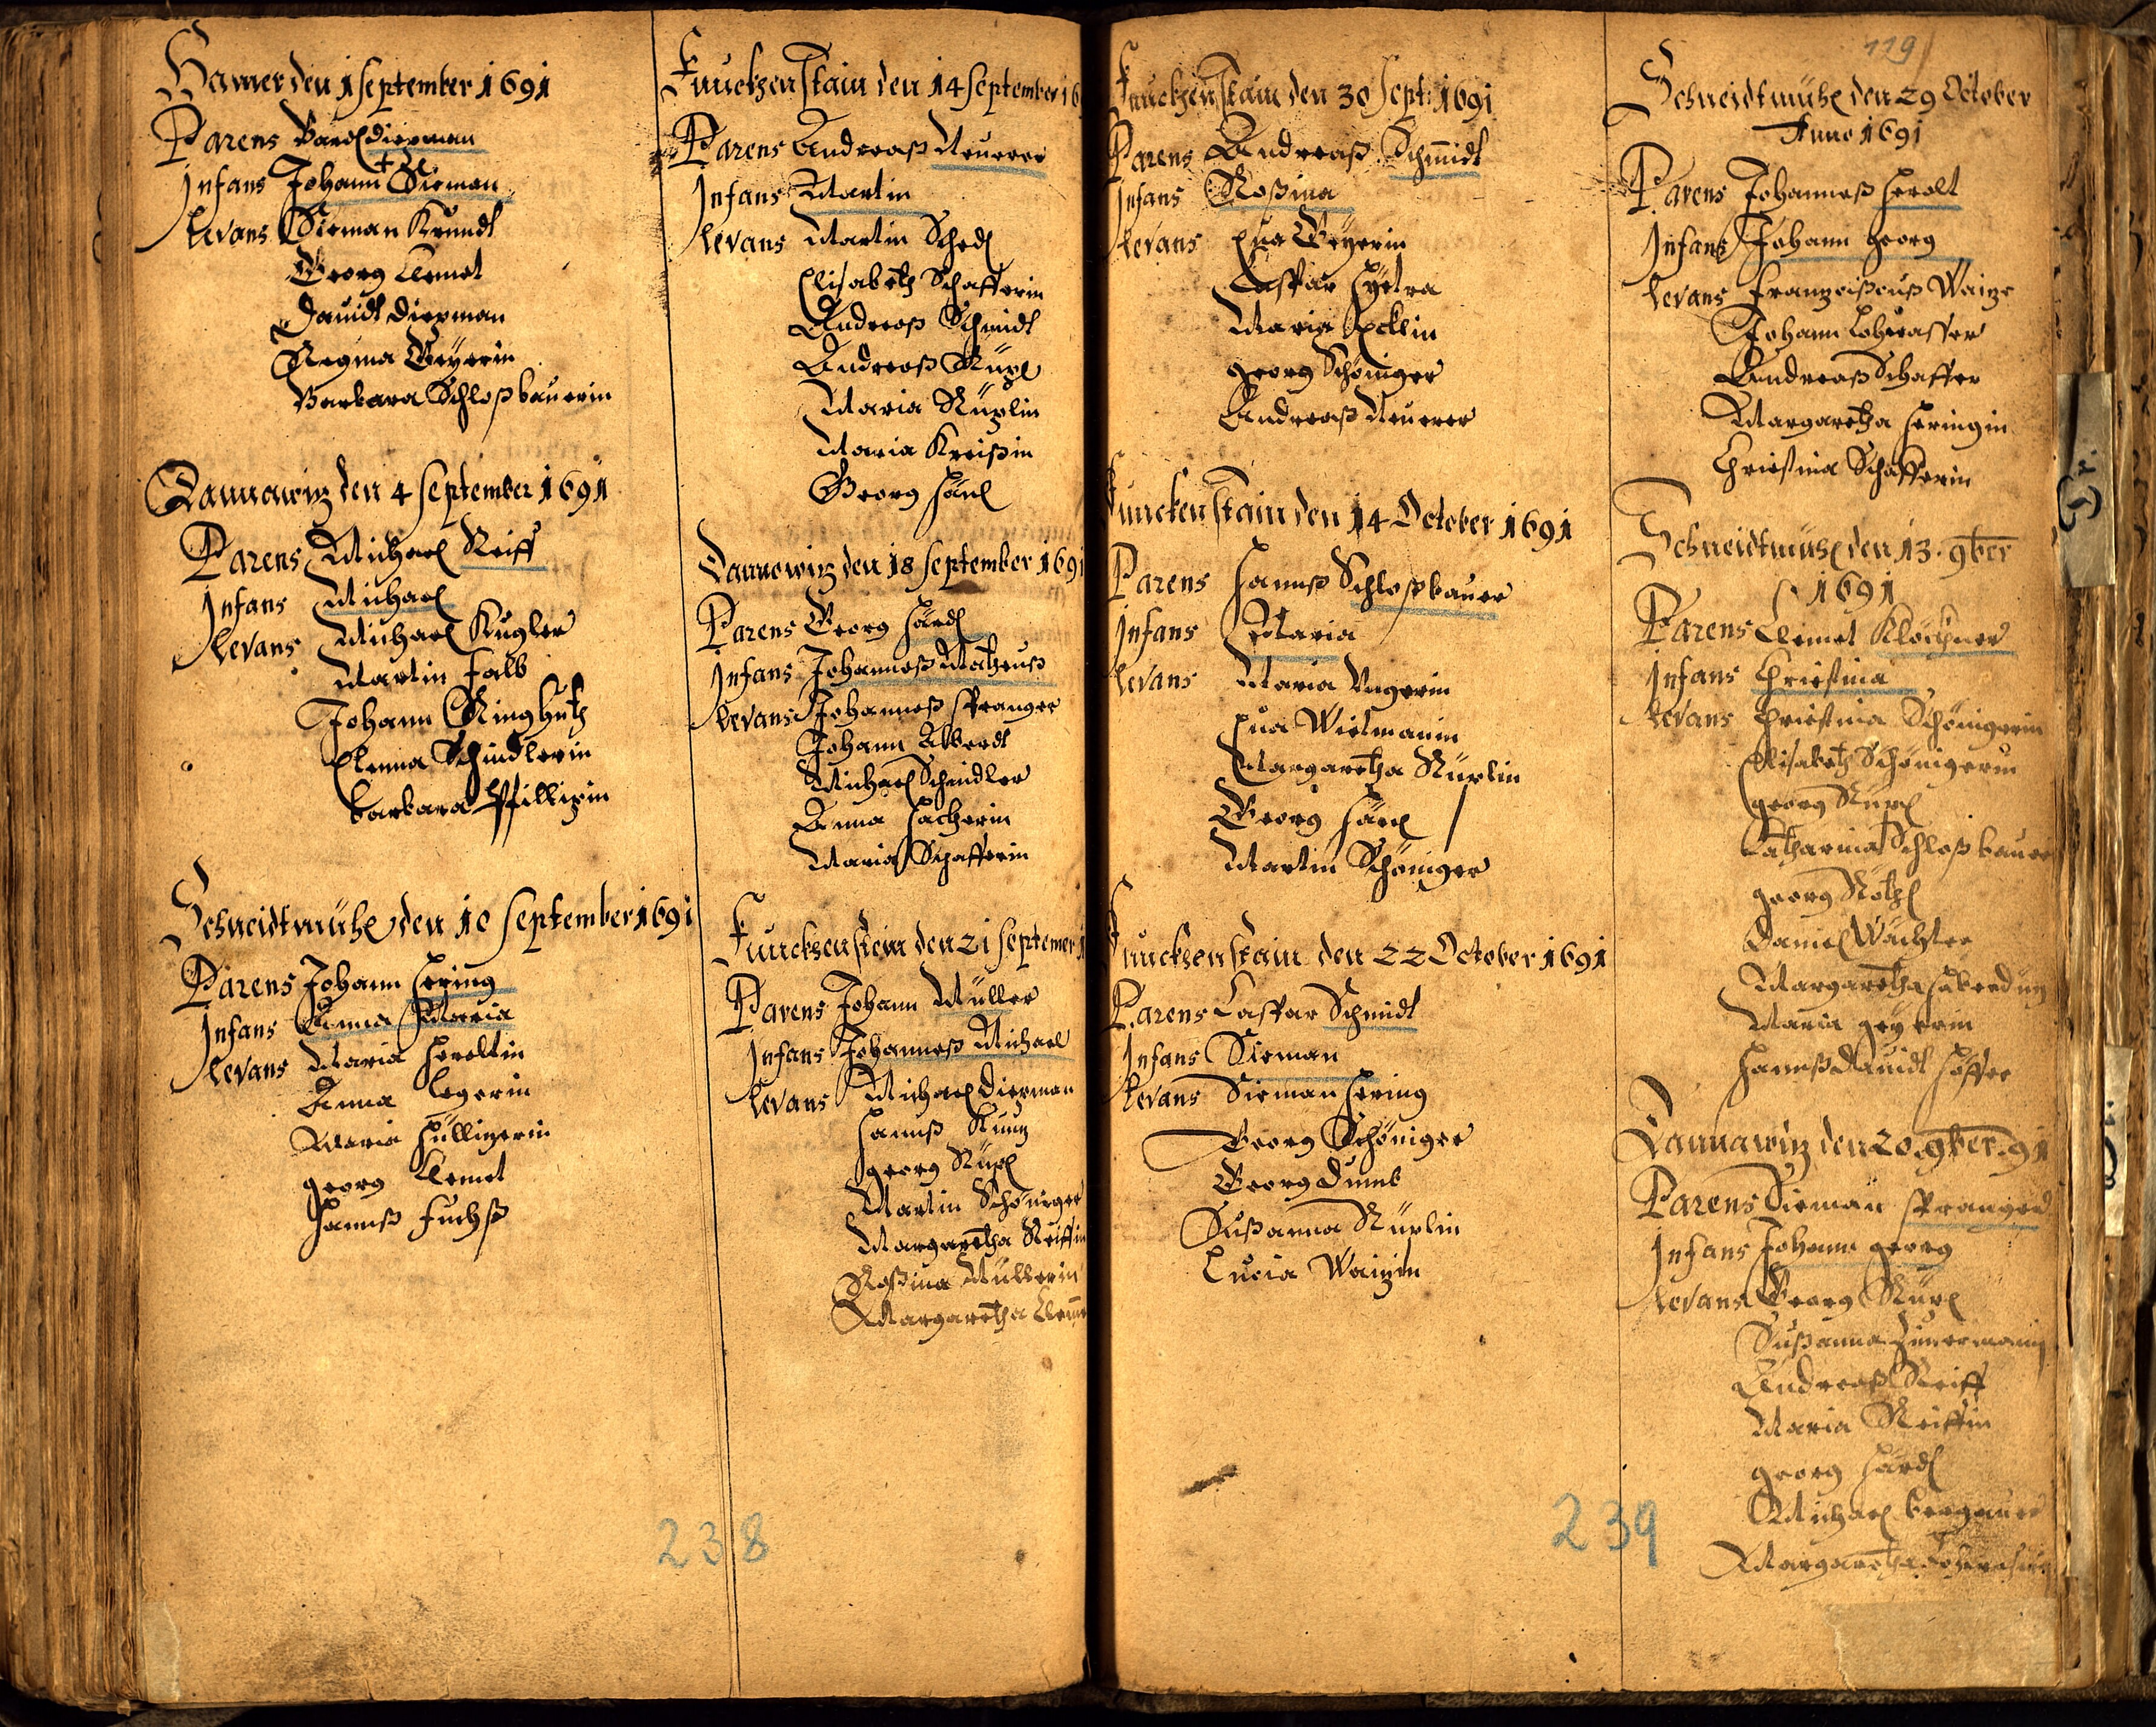 Hamer den 1 September 1691
Parens Bardl Dietzman
Infans Johann Sieman
levans Sieman Krundt
Georg Clemet
Dauidt Dietzman
Regina Geÿerin
Barbara Schloßbauerin
Dannawitz den 4 September 1691
Parens Michael Reiff
Infans Michael
levans Michael Kugler
Martin Falb
Johann Ringhuth
Elenna Schindlerin
barbara
Schneidtmühl den 10 September 1691
Parens Johann Hering
Infans Anna Maria
levans Maria Heroltin
Anna legerin
Maria Hüllingerin
georg Clemet
Hannß Fuchß
Funckhenstain den 14 September 16
Parens Andreaß Neuerer
Infans Martin
levans Martin Schedl
Elisabeth Schafferin
Andreaß Schmidt
Andreaß
Maria
Maria Kreißin
Georg
Dannewitz den 18 September 1691
Parens Georg Härdl
Infans Johanneß Matheuß
levans Johanneß Spranger
Johann Albredt
Michael Schindler
Anna Hacherin
Maria Schafferin
Funckhenstein den 21 Septemer 1
Parens Johann Müller
Infans Johanneß Michael
levans Michael Dietzman
Hannß Kuntz
georg
Martin Schöniger
Margaretha Reiffin
Roßina Müllerin
Margaretha
Funckhenstain den 30 Sept: 1691
Parens Andreaß Schmidt
Infans Roßina
levans Eua Geÿerin
Caspar
Maria Ecklin
georg Schöniger
Andreaß Neuerer
Funckenstain den 14 October 1691
Parens Hannß Schloßbauer
Infans Maria
levans Maria Ungerin
Eua Wietmanin
Margaretha
Georg
Martin Schöniger
Funckhenstain den 22 October 1691
Parens Caspar Schmidt
Infans Sieman
levans Sieman Hering
Georg Schöniger
Georg Dumb
Sußanna
Lucia Waitzin
119
Schneidtmühl den 29 October
Anno 1691
Parens Johanneß Herolt
Infans Johann Georg
levans Frantzißcuß Waitze
Johann Lohwasser
Andreaß Schaffer
Margaretha Heringin
Christina Schafferin
Schneidtmühl den 13. 9ber
1691
Parens Clemet Klöckner
Infans Christina
levans Christina Schönigerin
Elisabeth Schönigerin
georg
Catharina Schloßbauer
georg
Daniel Wächter
Margaretha
Maria geÿerin
Hannß Dauidt Höffer
Dannawitz den 20. 9ber. 91
Parens Sieman Spranger
Infans Johann georg
levans Georg
Sußanna Zimermanin
Andreaß Reiff
Maria Reiffin
georg Härdl
Michael bergauer
Margaretha
238
239